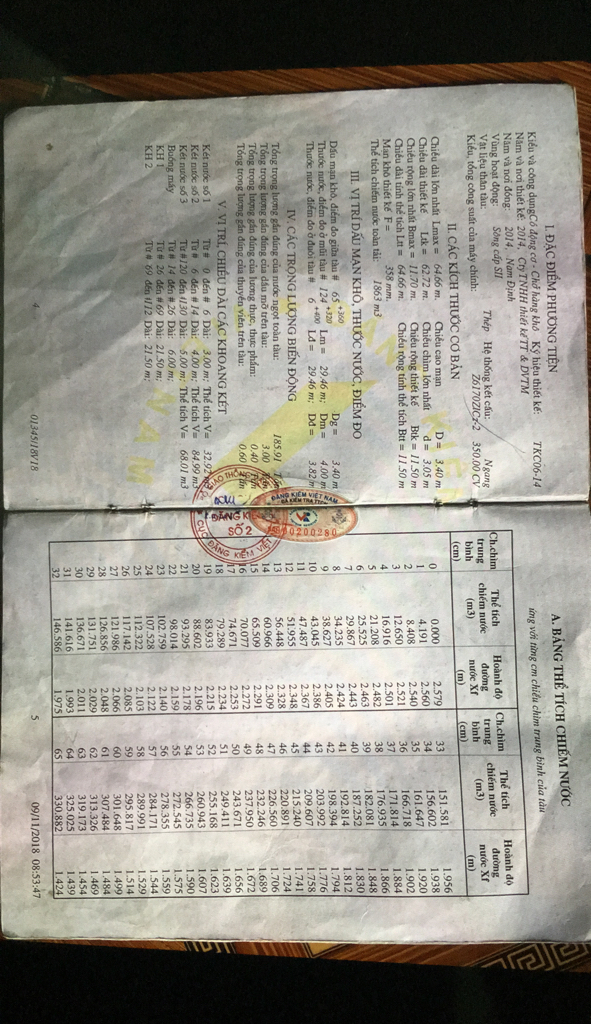 I. ĐẶC ĐIỂM PHƯƠNG TIỆN
Kiểu và công dụng: Có động cơ - Chở hàng khô Ký hiệu thiết kế: TKC06-14
Năm và nơi thiết kế: 2014, Cty TNHH thiết kế TT & DVTM
Năm và nơi đóng: 2014, Nam Định
Vùng hoạt động: Sông cấp SII
Vật liệu thân tàu: Thép Hệ thống kết cấu: Ngang
Kiểu, tổng công suất của máy chính: Z6170ZlCz-2 350.00 CV
II. CÁC KÍCH THƯỚC CƠ BẢN
Chiều dài lớn nhất Lmax = 64.66 m. Chiều cao mạn D = 3.40 m
Chiều dài thiết kế Ltk = 62.72 m. Chiều chìm lớn nhất d = 3.05 m
Chiều rộng lớn nhất Bmax = 11.70 m. Chiều rộng thiết kế Btk = 11.50 m
Chiều dài tính thể tích Ltt = 64.66 m. Chiều rộng tính thể tích Btt = 11.50 m
Mạn khô thiết kế F = 358 mm.
Thể tích chiếm nước toàn tải: 1863 m3
III. VỊ TRÍ DẤU MẠN KHÔ, THƯỚC NƯỚC, ĐIỂM ĐO
Dấu mạn khô, điểm đo giữa tàu # 65 +300 Dg = 3.40 m
Thước nước, điểm đo ở mũi tàu # 124 +320 Lm = 29.46 m; Dm = 4.00 m
Thước nước, điểm đo ở đuôi tàu # 6 +400 Lđ = 29.46 m; Dđ = 3.82 m
IV. CÁC TRỌNG LƯỢNG BIẾN ĐỘNG
Tổng trọng lượng gần đúng của nước ngọt toàn tàu: 185.91
Tổng trọng lượng gần đúng của dầu mỡ trên tàu: 3.00
Tổng trọng lượng gần đúng của lương thực, thực phẩm: 0.40
Tổng trọng lượng gần đúng của thuyền viên trên tàu: 0.60
V. VỊ TRÍ, CHIỀU DÀI CÁC KHOANG KÉT
Két nước số 1 Từ # 0 đến # 6 Dài: 3.00 m; Thể tích V =
Két nước số 2 Từ # 6 đến # 14 Dài: 4.00 m; Thể tích V = 84.99 m3
Két nước số 3 Từ # 120 đến #130 Dài: 5.00 m; Thể tích V = 68.01 m3
Buồng máy Từ # 14 đến # 26 Dài: 6.00 m;
KH 1 Từ # 26 đến # 69 Dài: 21.50 m;
KH 2 Từ # 69 đến #112 Dài: 21.50 m;
4 01345/18V18
ĐĂNG KIỂM VIỆT NAM
ĐÃ KIỂM TRA
00200280
BỘ GIAO THÔNG
ĐĂNG KIỂM
SỐ 2
CỤC ĐĂNG KIỂM VIỆT
A. BẢNG THỂ TÍCH CHIẾM NƯỚC
ứng với từng cm chiều chìm trung bình của tàu
Ch.chìm trung bình (cm) Thể tích chiếm nước (m3) Hoành độ đường nước Xf (m) Ch.chìm trung bình (cm) Thể tích chiếm nước (m3) Hoành độ đường nước Xf (m)
0 0.000 2.579 33 151.581 1.956
1 4.191 2.560 34 156.602 1.938
2 8.408 2.540 35 161.647 1.920
3 12.650 2.521 36 166.718 1.902
4 16.916 2.501 37 171.814 1.884
5 21.208 2.482 38 176.935 1.866
6 25.525 2.465 39 182.081 1.848
7 29.867 2.443 40 187.252 1.830
8 34.235 2.424 41 192.814 1.812
9 38.627 2.405 42 198.394 1.794
10 43.045 2.386 43 203.992 1.776
11 47.487 2.367 44 209.607 1.758
12 51.955 2.348 45 215.240 1.741
13 56.448 2.328 46 220.891 1.724
14 60.966 2.309 47 226.560 1.706
15 65.509 2.291 48 232.246 1.689
16 70.077 2.272 49 237.950 1.672
17 74.671 2.253 50 243.671 1.656
18 79.289 2.234 51 249.411 1.639
19 83.933 2.215 52 255.168 1.623
20 88.602 2.196 53 260.943 1.607
21 93.295 2.178 54 266.735 1.590
22 98.014 2.159 55 272.545 1.575
23 102.759 2.140 56 278.355 1.559
24 107.528 2.122 57 284.171 1.544
25 112.322 2.103 58 289.991 1.529
26 117.142 2.085 59 295.817 1.514
27 121.986 2.066 60 301.648 1.499
28 126.856 2.048 61 307.484 1.484
29 131.751 2.029 62 313.326 1.469
30 136.671 2.011 63 319.173 1.454
31 141.616 1.993 64 325.025 1.439
32 146.586 1.975 65 330.882 1.424
5 09/11/2018 08:53:47